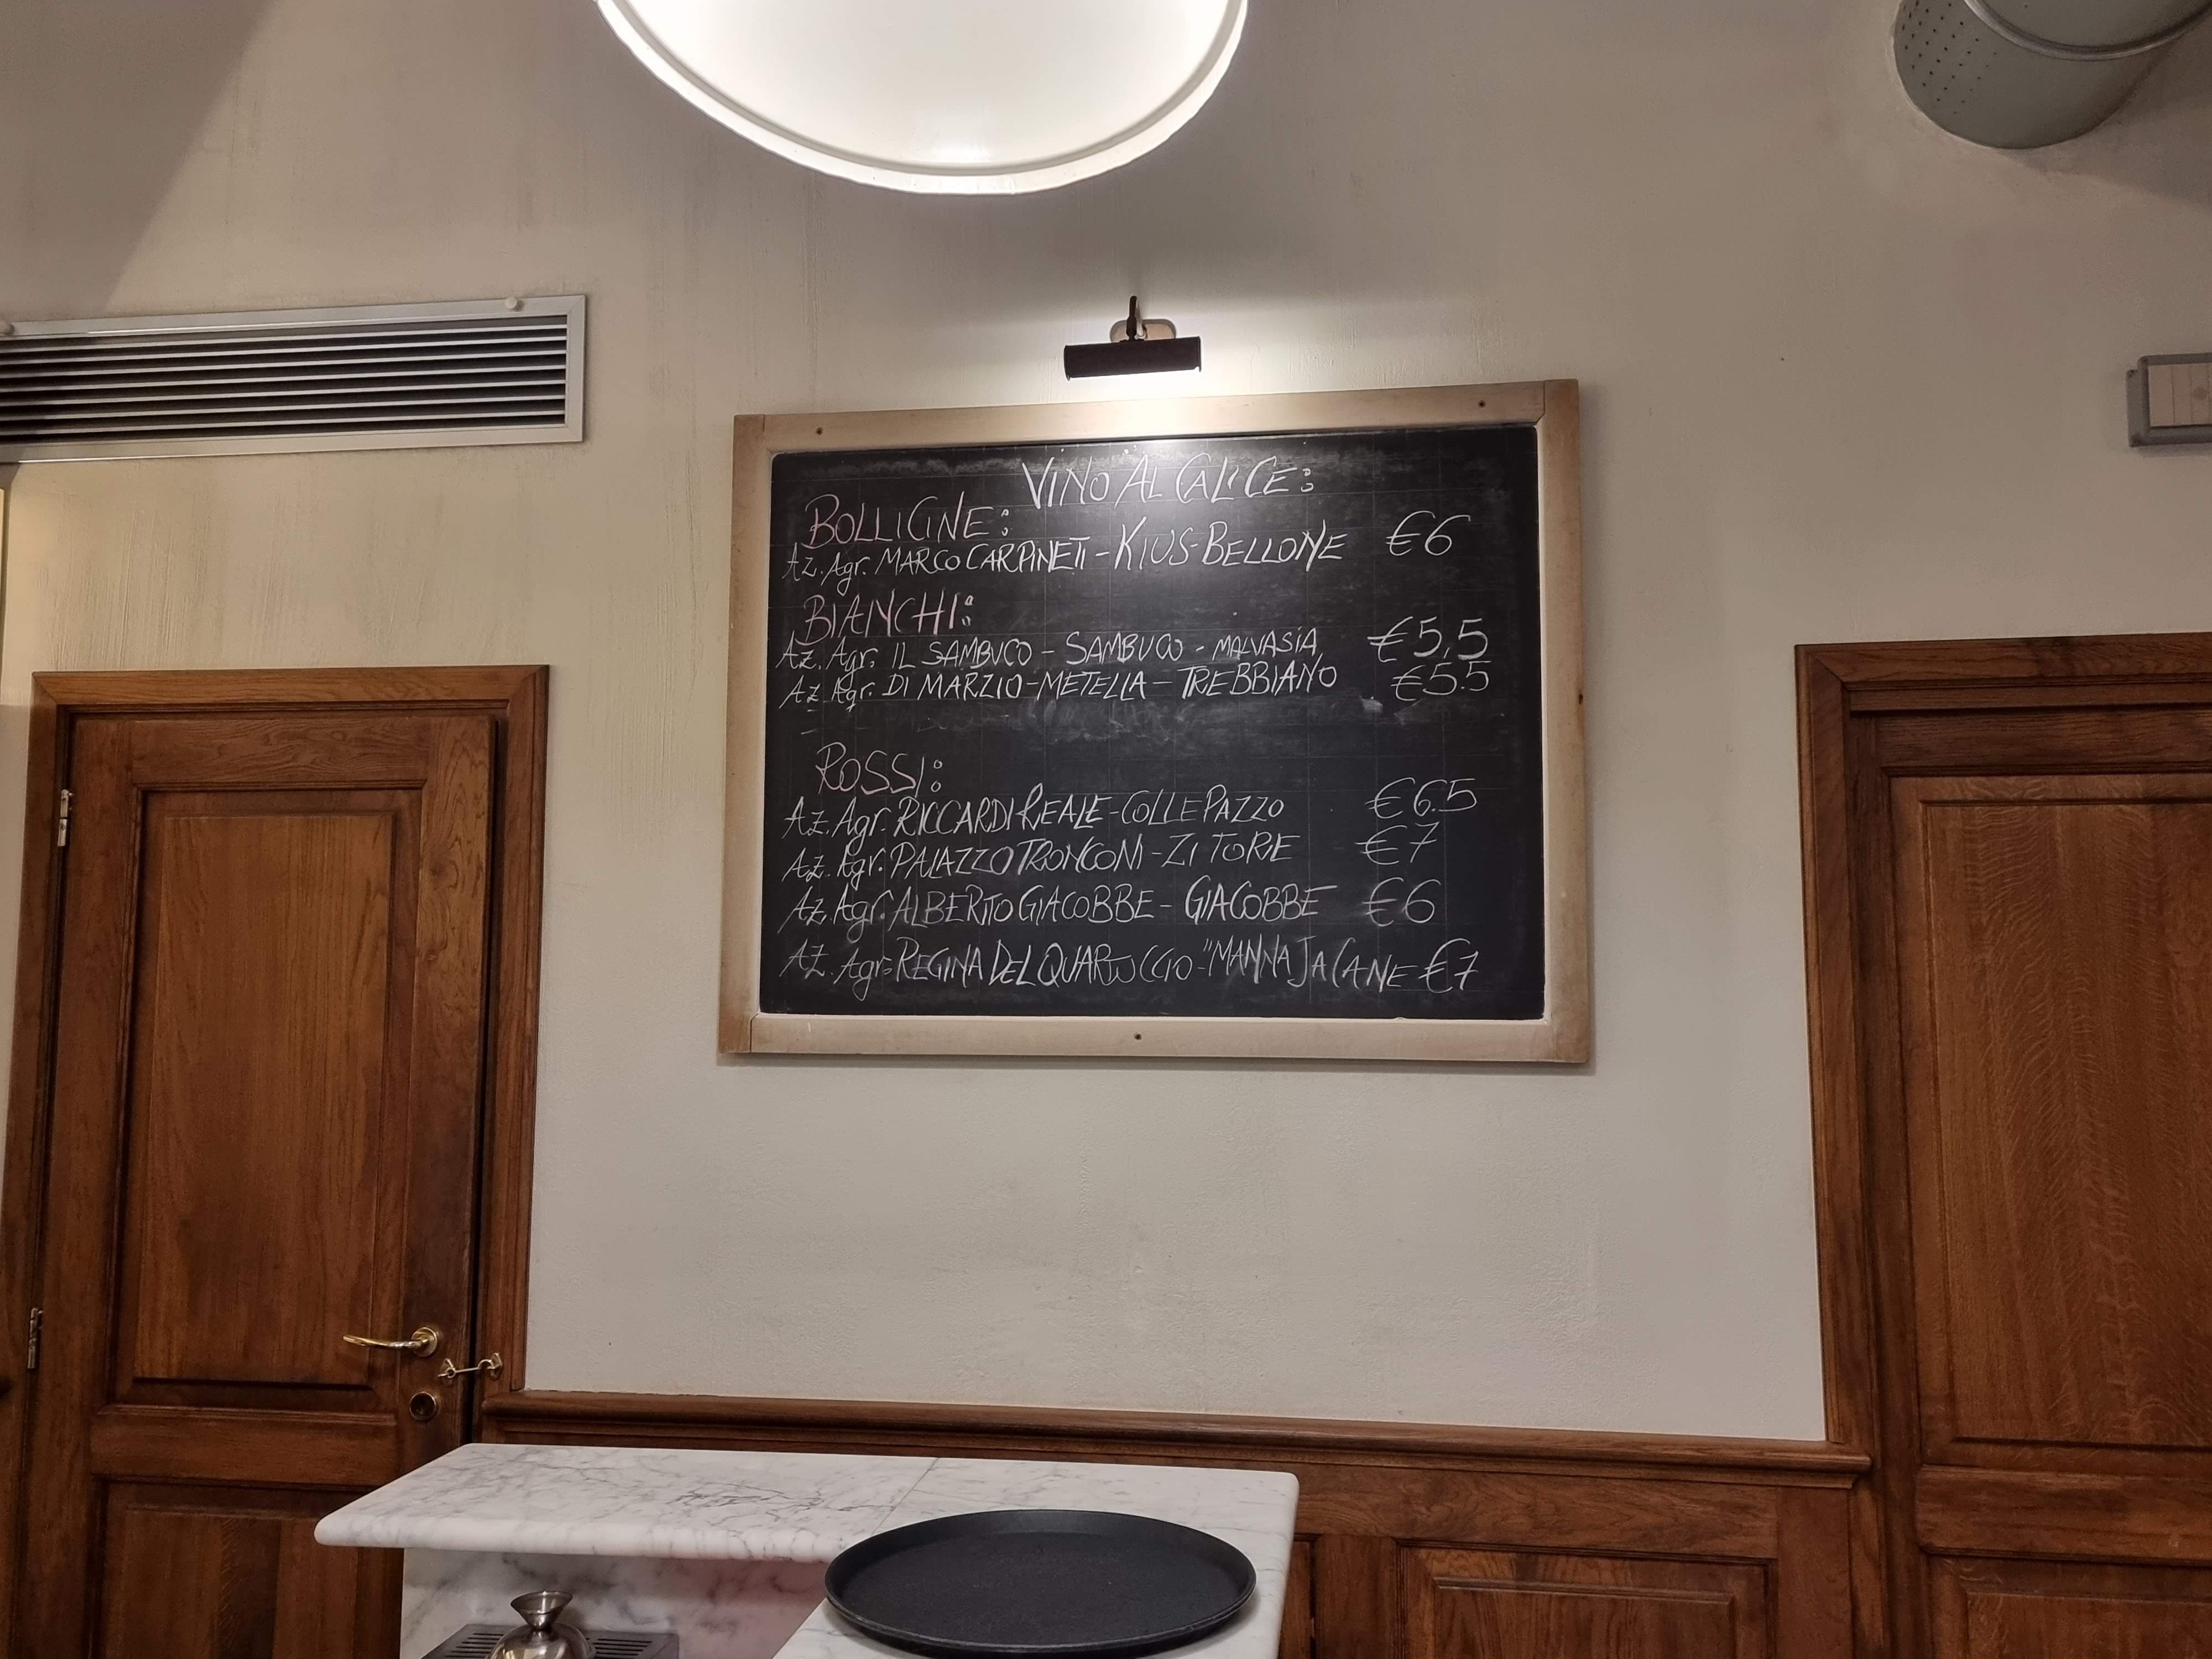 VINO AL CALICE:
BOLLICINE:
Az. Agr. MARCO CARPINETI - KIUS - BELLONE €6
BIANCHI:
Az. Agr. IL SAMBUCO - SAMBUCO - MALVASIA €5,5
Az. Agr. DI MARZIO - METELLA - TREBBIANO €5.5
ROSSI:
Az. Agr. RICCARDI REALE - COLLE PAZZO €6.5
Az. Agr. PALAZZO TRONCONI - ZITORE €7
Az. Agr. ALBERTO GIACOBBE - GIACOBBE €6
Az. Agr. REGINA DEL QUARTUCCIO - "MANNAJA CANE €7